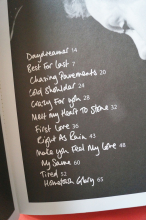 Daydreamer 14
Best For Last 7
Chasing Pavements 20
Cold Shoulder 24
Crazy For You 28
Melt My Heart To Stone 32
First Love 36
Right As Rain 43
Make You Feel My Love 48
My Same 60
Tired 52
Hometown Glory 63